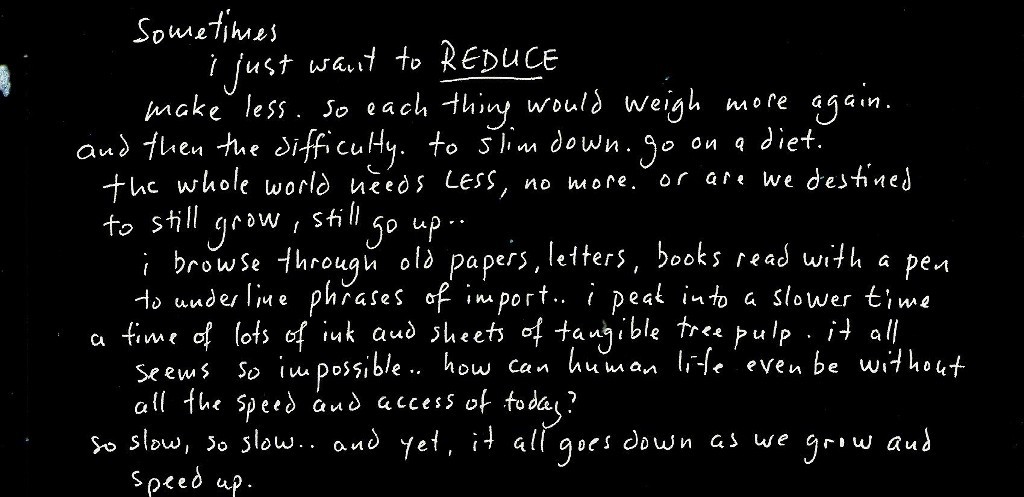 Sometimes
i just want to REDUCE
make less. so each thing would weigh more again.
and then the difficulty. to slim down. go on a diet.
the whole world needs LESS, no more. or are we destined
to still grow, still go up..
i browse through old papers, letters, books read with a pen
to underline phrases of import.. i peak into a slower time
a time of lots of ink and sheets of tangible tree pulp. it all
seems so impossible.. how can human life even be without
all the speed and access of today?
so slow, so slow.. and yet, it all goes down as we grow and
speed up.